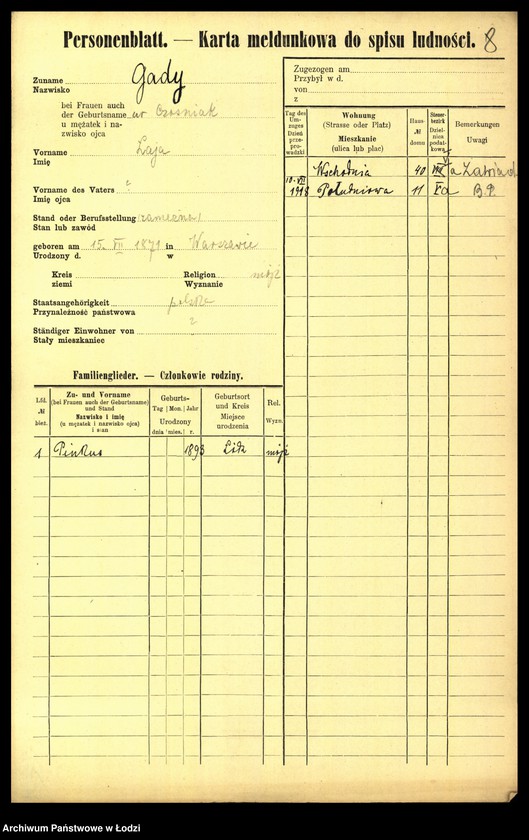 Personenblatt. — Karta meldunkowa do spisu ludności. 8
Zuname Gady
Nazwisko
bei Frauen auch
der Geburtsname ur Czosniak
u mężatek i na-
zwisko ojca
Vorname Łaja
Imię
Vorname des Vaters ?
Imię ojca
Stand oder Berufsstellung zamężna
Stan lub zawód
geboren am 15. VII 1871 in Warszawie
Urodzony d. w
Kreis Religion mojż
ziemi Wyznanie
Staatsangehörigkeit polska
Przynależność państwowa
Ständiger Einwohner von ?
Stały mieszkaniec
Familienglieder. — Członkowie rodziny.
Lfd. № bież.
Zu- und Vorname
(bei Frauen auch der Geburtsname)
und Stand
Nazwisko i imię
(u mężatek i nazwisko ojca)
i stan
Geburts-
Tag Mon. Jahr
Urodzony
dnia mies. r.
Geburtsort
und Kreis
Miejsce
urodzenia
Rel.
Wyzn.
1 Pinkus 1893 Łódź mojż
Zugezogen am
Przybył w d.
von
z
Tag des
Um-
zuges
Dzień
prze-
pro-
wadzki
Wohnung
(Strasse oder Platz)
Mieszkanie
(ulica lub plac)
Haus-
№
domu
Steuer-
bezirk
Dziel-
nica
podat-
kowa
Bemerkungen
Uwagi
Wschodnia 40 VIII a
10.VII
1918 Południowa 11 Va B.P.
Archiwum Państwowe w Łodzi